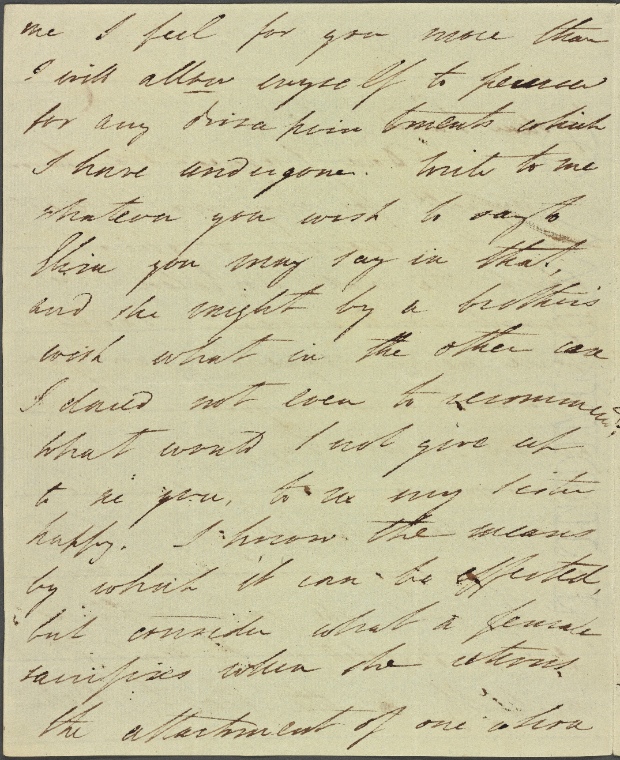 me I feel for you more than
I will allow myself to
for any disappointments which
I have undergone. Write to me
whatever you wish to say to
Eliza you may say in that,
and she might by a brother's
wish what in the other case
I dared not even to recommend
What would I not give up
to see you, to see my sister
happy. I know the means
by which it can be effected,
but consider what a female
sacrifices when she
the attachment of one whom